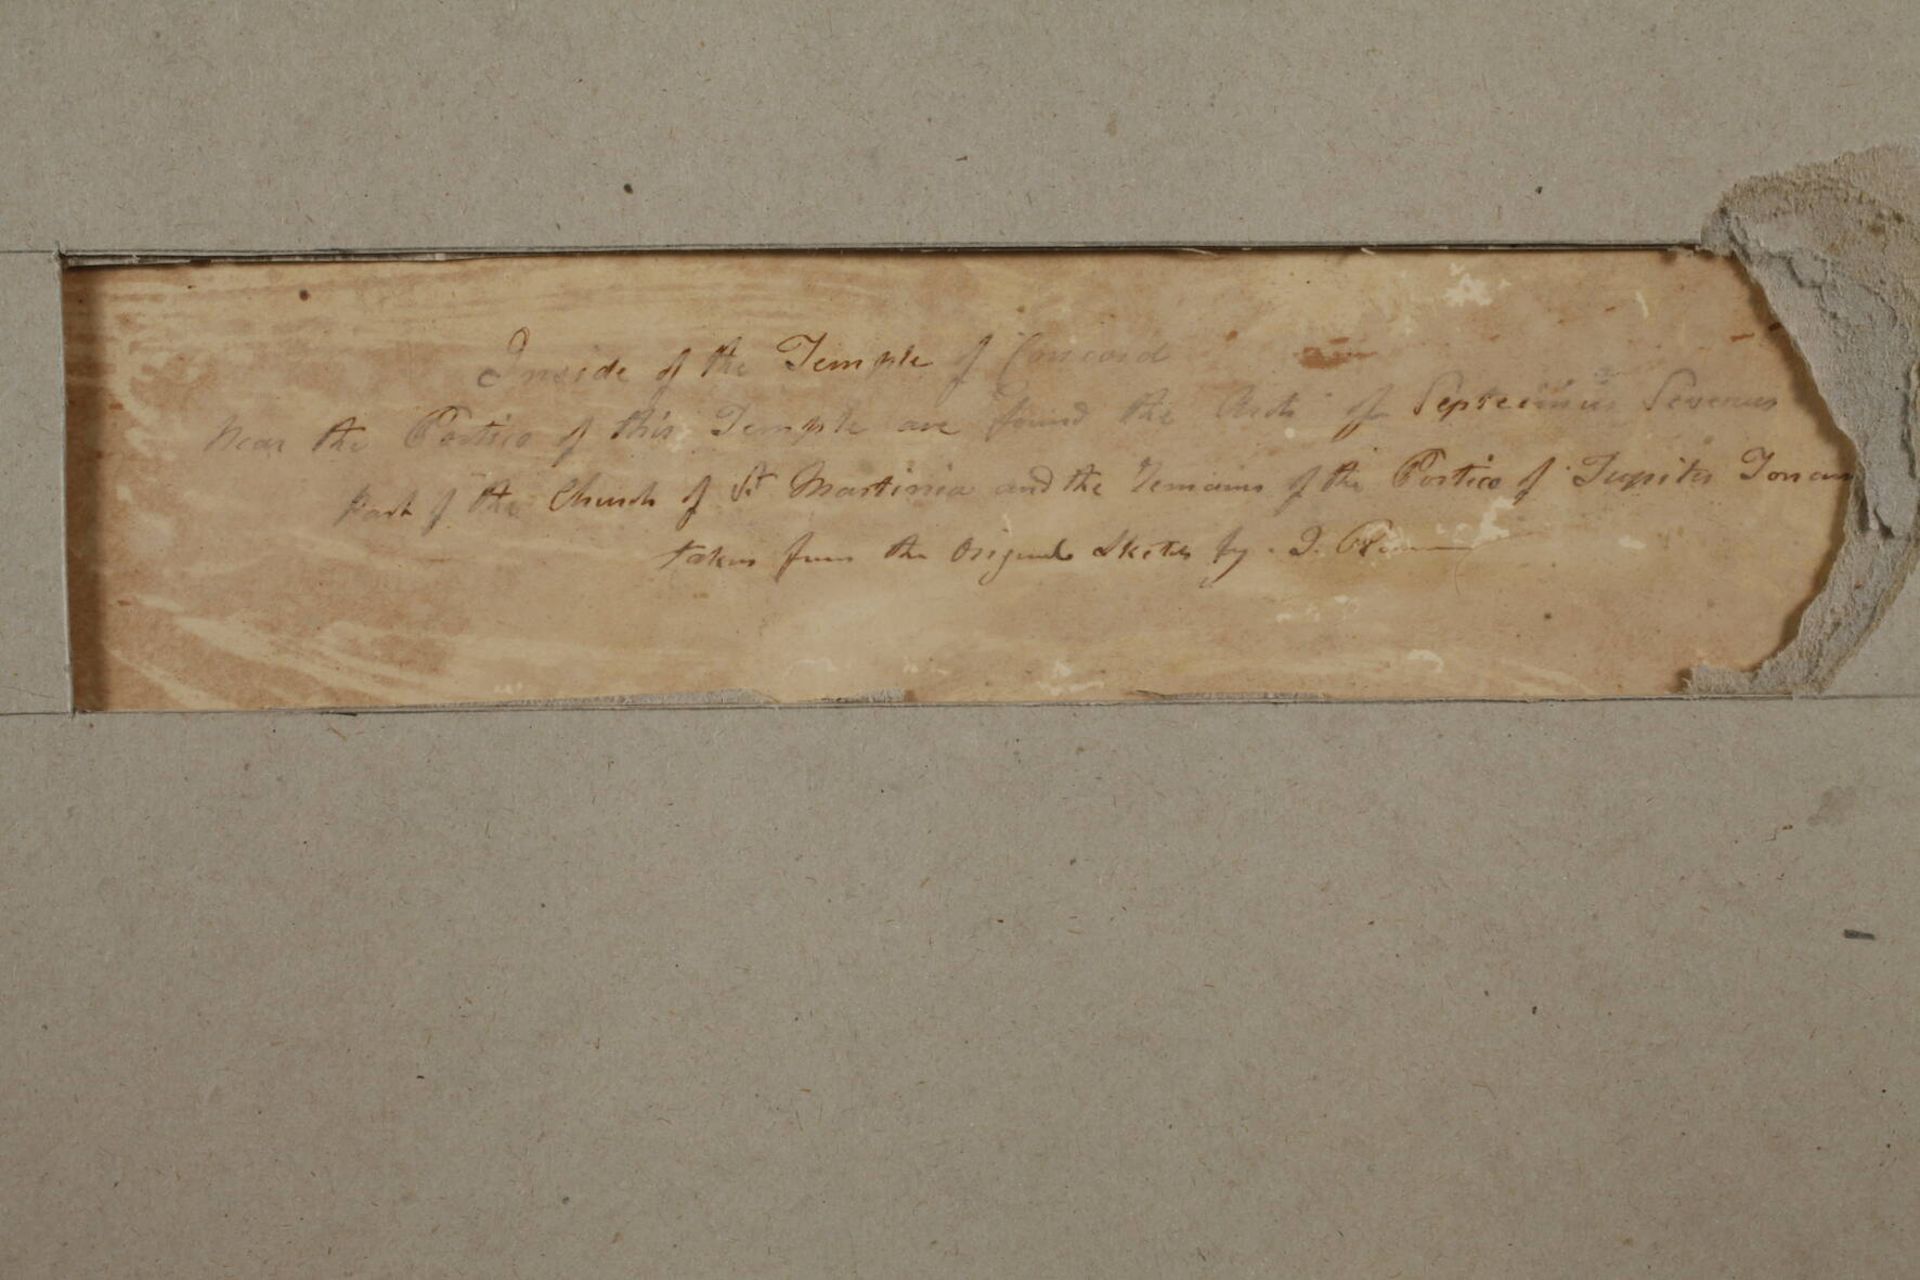 Inside of the Temple of Concord
Near the Portico of this Temple are found the Arch of Septeimius Severus
Part of the Church of St Martinia and the Remains of the Portico of Jupiter Tonan
taken from the Original Sketch by. J.